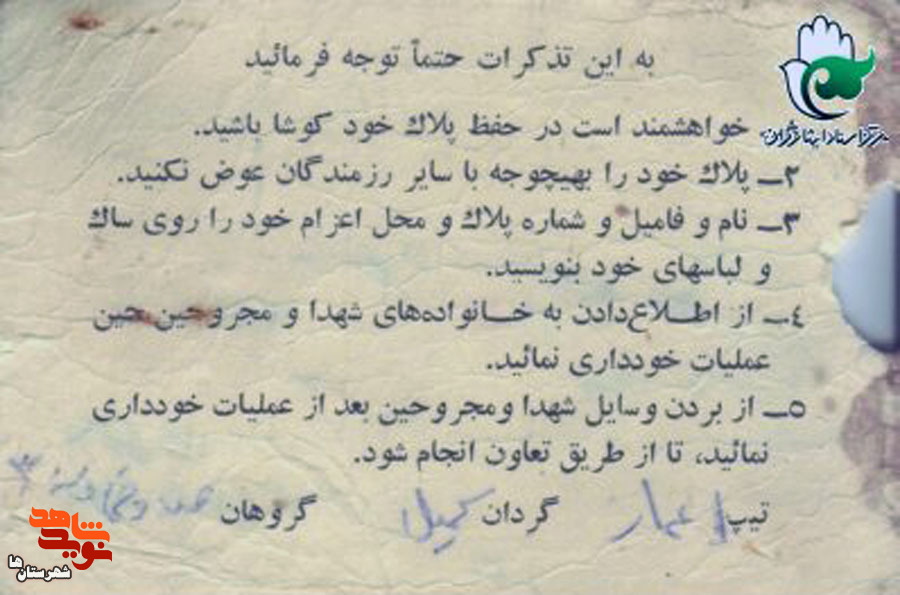 به این تذکرات حتماً توجه فرمائید
خواهشمند است در حفظ پلاك خود کوشا باشید.
۲ــ پلاك خود را بهیچوجه با سایر رزمندگان عوض نکنید.
۳ــ نام و فامیل و شماره پلاك و محل اعزام خود را روی ساك
و لباسهای خود بنویسید.
٤ــ از اطــلاع‌دادن به خــانواده‌های شهدا و مجروحین حین
عملیات خودداری نمائید.
۵ــ از بردن وسایل شهدا ومجروحین بعد از عملیات خودداری
نمائید، تا از طریق تعاون انجام شود.
تیپ ۱ عمار گردان کمیل گروهان
مرکز اسناد ایثارگران
نوید شاهد
شهرستان‌ها